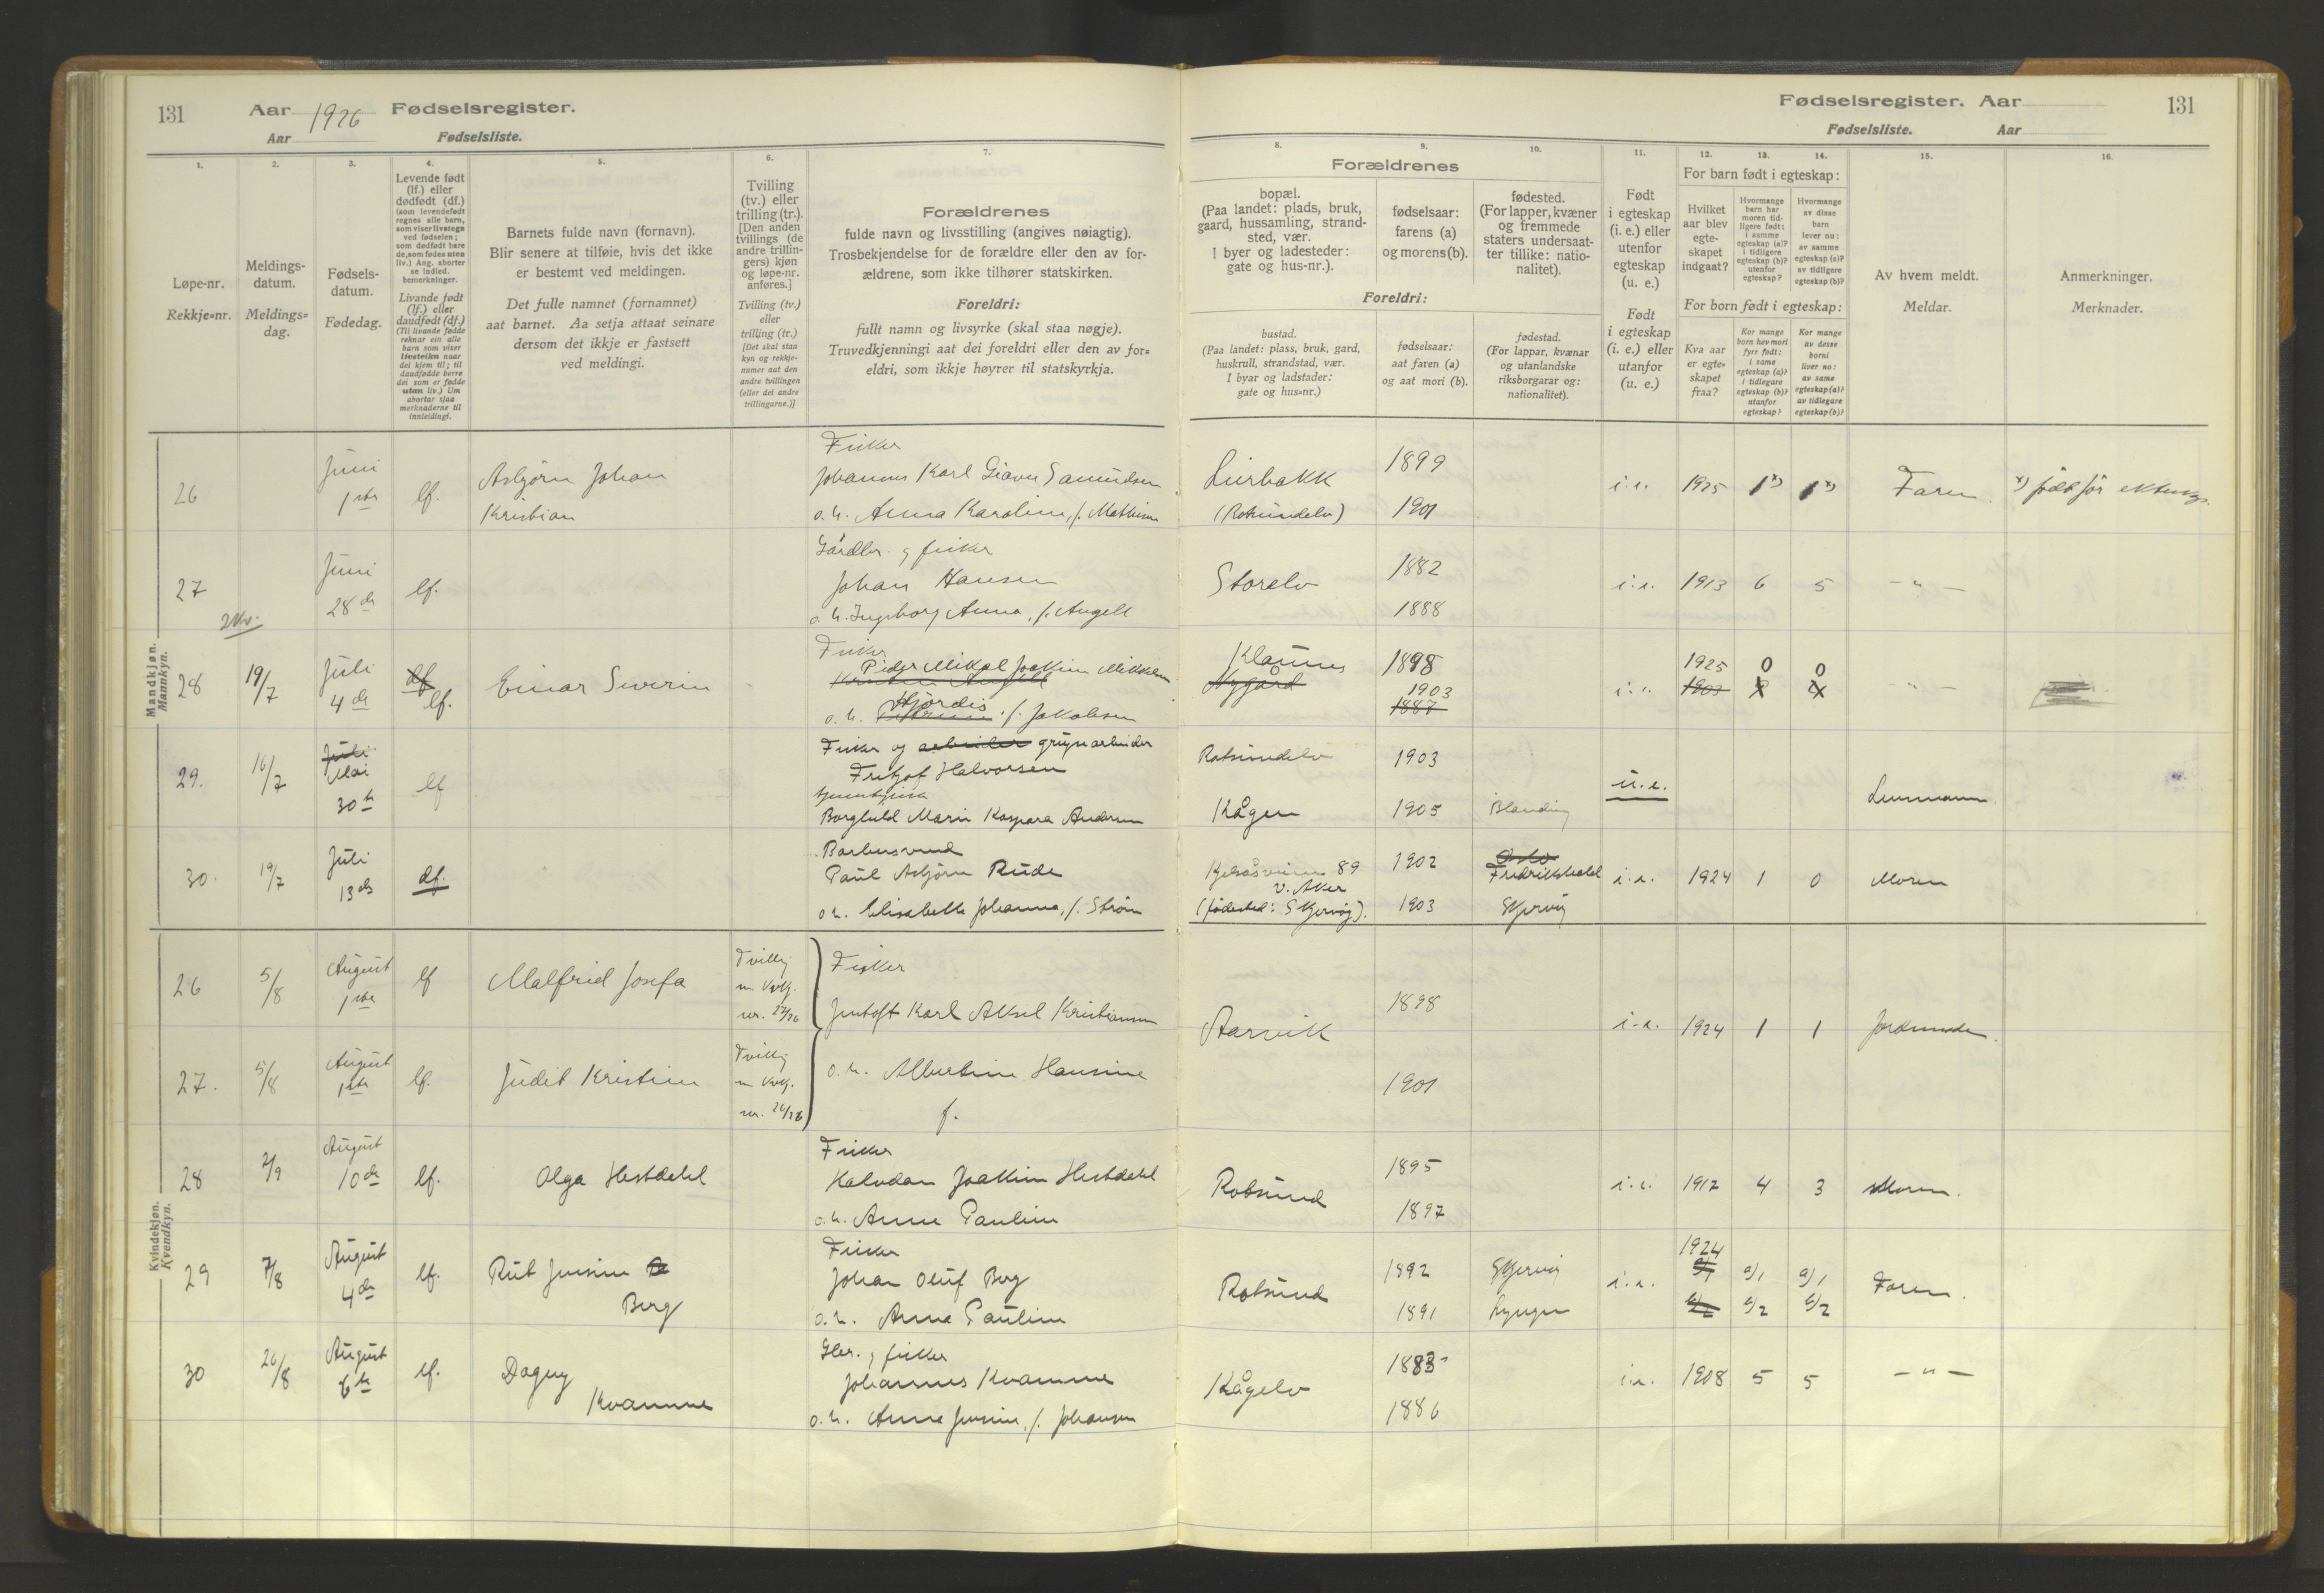 131
Aar 1926 Fødselsregister.
Aar Fødselsliste.
1.
2.
3.
4.
5.
6.
7.
Løpe-nr.
Rekkje=nr.
Meldings-
datum.
Meldings=
dag.
Fødsels-
datum.
Fødedag.
Levende født
(lf.) eller
dødfødt (df.)
(som levendefødt
regnes alle barn,
som viser livstegn
ved fødselen;
som dødfødt bare
de, som fødes uten
liv.) Ang. aborter
se indled.
bemerkninger.
Livande født
(lf.) eller
daudfødt (df.)
(Til livande fødde
reknar ein alle
barn som viser
livsteikn naar
dei kjem til; til
daudfødde berre
dei som er fødde
utan liv.) Um
abortar sjaa
merknaderne til
innleidingi.
Barnets fulde navn (fornavn).
Blir senere at tilføie, hvis det ikke
er bestemt ved meldingen.
Det fulle namnet (fornamnet)
aat barnet. Aa setja attaat seinare
dersom det ikkje er fastsett
ved meldingi.
Tvilling
(tv.) eller
trilling (tr.).
[Den anden
tvillings (de
andre trillin-
gers) kjøn
og løpe-nr.
anføres.]
Tvilling (tv.)
eller
trilling (tr.)
[Det skal staa
kyn og rekkje-
numer aat den
andre tvillingen
(eller dei andre
trillingarne.)]
Forældrenes
fulde navn og livsstilling (angives nøiagtig).
Trosbekjendelse for de forældre eller den av for-
ældrene, som ikke tilhører statskirken.
Foreldri:
fullt namn og livsyrke (skal staa nøgje).
Truvedkjenningi aat dei foreldri eller den av for=
eldri, som ikkje høyrer til statskyrkja.
Mandkjøn.
Mannkyn.
26
Juni
1ste
lf.
Asbjørn Johan
Kristian
Fisker
Johannes Karl Giæver Samuelsen
o. h. Anna Karoline, f. Mathisen
27
Juni
28de
lf.
Gårdbr. og fisker
Johan Hansen
o. h. Ingeborg Anna, f. Angell
28
19/7
Juli
4de
df
lf.
Einar Severin
Fisker
Peder Mikal Joakim Mikkelsen
Hjördis
o. h. f. Jakobsen
29.
16/7
Juli
Mai
30te
lf
Fisker og arbeider grubearbeider
Fritjof Halvorsen
Borghild Marie Kaspara Andersen
30.
19/7
Juli
13de
df.
Paul Asbjørn Rude
o. h. Elisabeth Johanna, f. Strøm
Kvindekjøn.
Kvendkyn.
26
5/8
August
1ste
lf
Malfrid Josefa
Tvilling
m. kvkj.
nr. 27/26
Fisker
Jentoft Karl Aksel Kristiansen
27.
5/8
August
1ste
lf.
Judit Kristine
Tvilling
m. kvkj.
nr. 26/26
o. h. Albertine Hansine
f.
28
2/9
August
10de
lf.
Olga Hestdahl
Fisker
Halvdan Joakim Hestdahl
o. h. Anne Pauline
29
7/8
August
4de
lf.
Rut Jensine
Berg
Fisker
Johan Oluf Berg
o. h. Anna Pauline
30
26/8
August
6te
lf.
Dagny
Kvamme
Gbr. og fisker
Johannes Kvamme
o. h. Anna Jensine, f. Johansen
Fødselsregister. Aar
131
Fødselsliste. Aar
8.
9.
10.
11.
12.
13.
14.
15.
16.
Forældrenes
bopæl.
(Paa landet: plads, bruk,
gaard, hussamling, strand-
sted, vær.
I byer og ladesteder:
gate og hus-nr.).
fødselsaar:
farens (a)
og morens (b).
fødested.
(For lapper, kvæner
og fremmede
staters undersaat-
ter tillike: natio-
nalitet).
Foreldri:
bustad.
(Paa landet: plass, bruk, gard,
huskrull, strandstad, vær.
I byar og ladstader:
gate og hus=nr.)
fødselsaar:
aat faren (a)
og aat mori (b).
fødestad.
(For lappar, kvænar
og utanlandske
riksborgarar og:
nationalitet).
Født
i egteskap
(i. e.) eller
utenfor
egteskap
(u. e.)
Født
i egteskap
(i. e.) eller
utanfor
egteskap
(u. e.)
For barn født i egteskap:
Hvilket
aar blev
egte-
skapet
indgaat?
Hvormange
barn har
moren tid-
ligere født:
i samme
egteskap (a)?
i tidligere
egteskap (b)?
utenfor
egteskap?
Hvormange
av disse
barn
lever nu:
av samme
egteskap (a)?
av tidligere
egteskap (b)?
For born født i egteskap:
Kva aar
er egte=
skapet
fraa?
Kor mange
born hev mori
fyrr født:
i same
egteskap (a)?
i tidlegare
egteskap (b)?
utanfor
egteskap?
Kor mange
av desse
borni
liver no:
av same
egteskap (a)?
av tidlegare
egteskap (b)?
Av hvem meldt.
Meldar.
Anmerkninger.
Merknader.
(Rotsundelv)
1899
1901
i. e.
1925
1 x)
1 x)
Faren.
x) født før
Storelv
1882
1888
i. e.
1913
6
5
- " -
Nygård
1898
1903
1887
i. e.
1925
1903
0
0
- " -
Rotsundelv
Kågen
1903
1905
Blanding
u. e.
Lensmann.
Kjelsåsveien 89
V. Aker
(fødested: Skjervøy).
1902
1903
Oslo
Fredrikshald
Skjervøy
i. e.
1924
1
0
Moren
Aarvik
1898
1901
i. e.
1924
1
1
Jordmoder.
Rotsund
1895
1897
i. e.
1917
4
3
Moren.
Rotsund
1892
1891
Skjervøy
Lyngen
i. e.
1924
a/1
b/2
a/1
b/2
Faren.
Kågelv
1883
1886
i. e.
1908
5
5
- " -